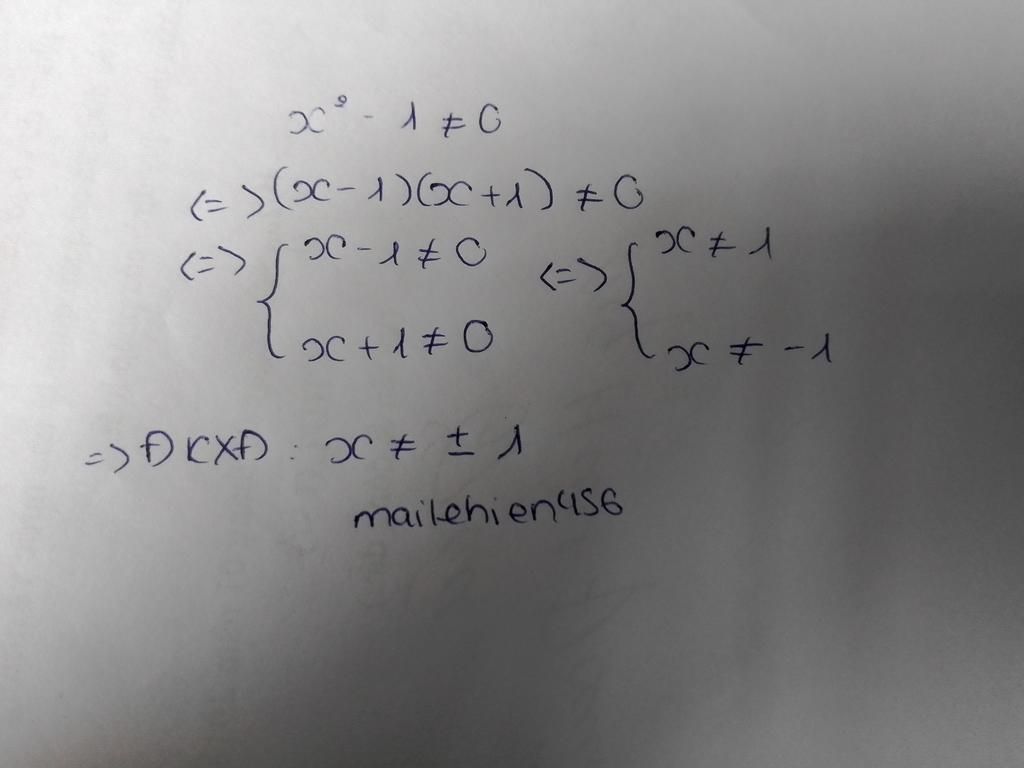 x² - 1 ≠ 0
<=> (x - 1)(x + 1) ≠ 0
<=> { x - 1 ≠ 0 <=> { x ≠ 1
x + 1 ≠ 0 x ≠ -1
=> ĐKXĐ : x ≠ ± 1
mailehien456